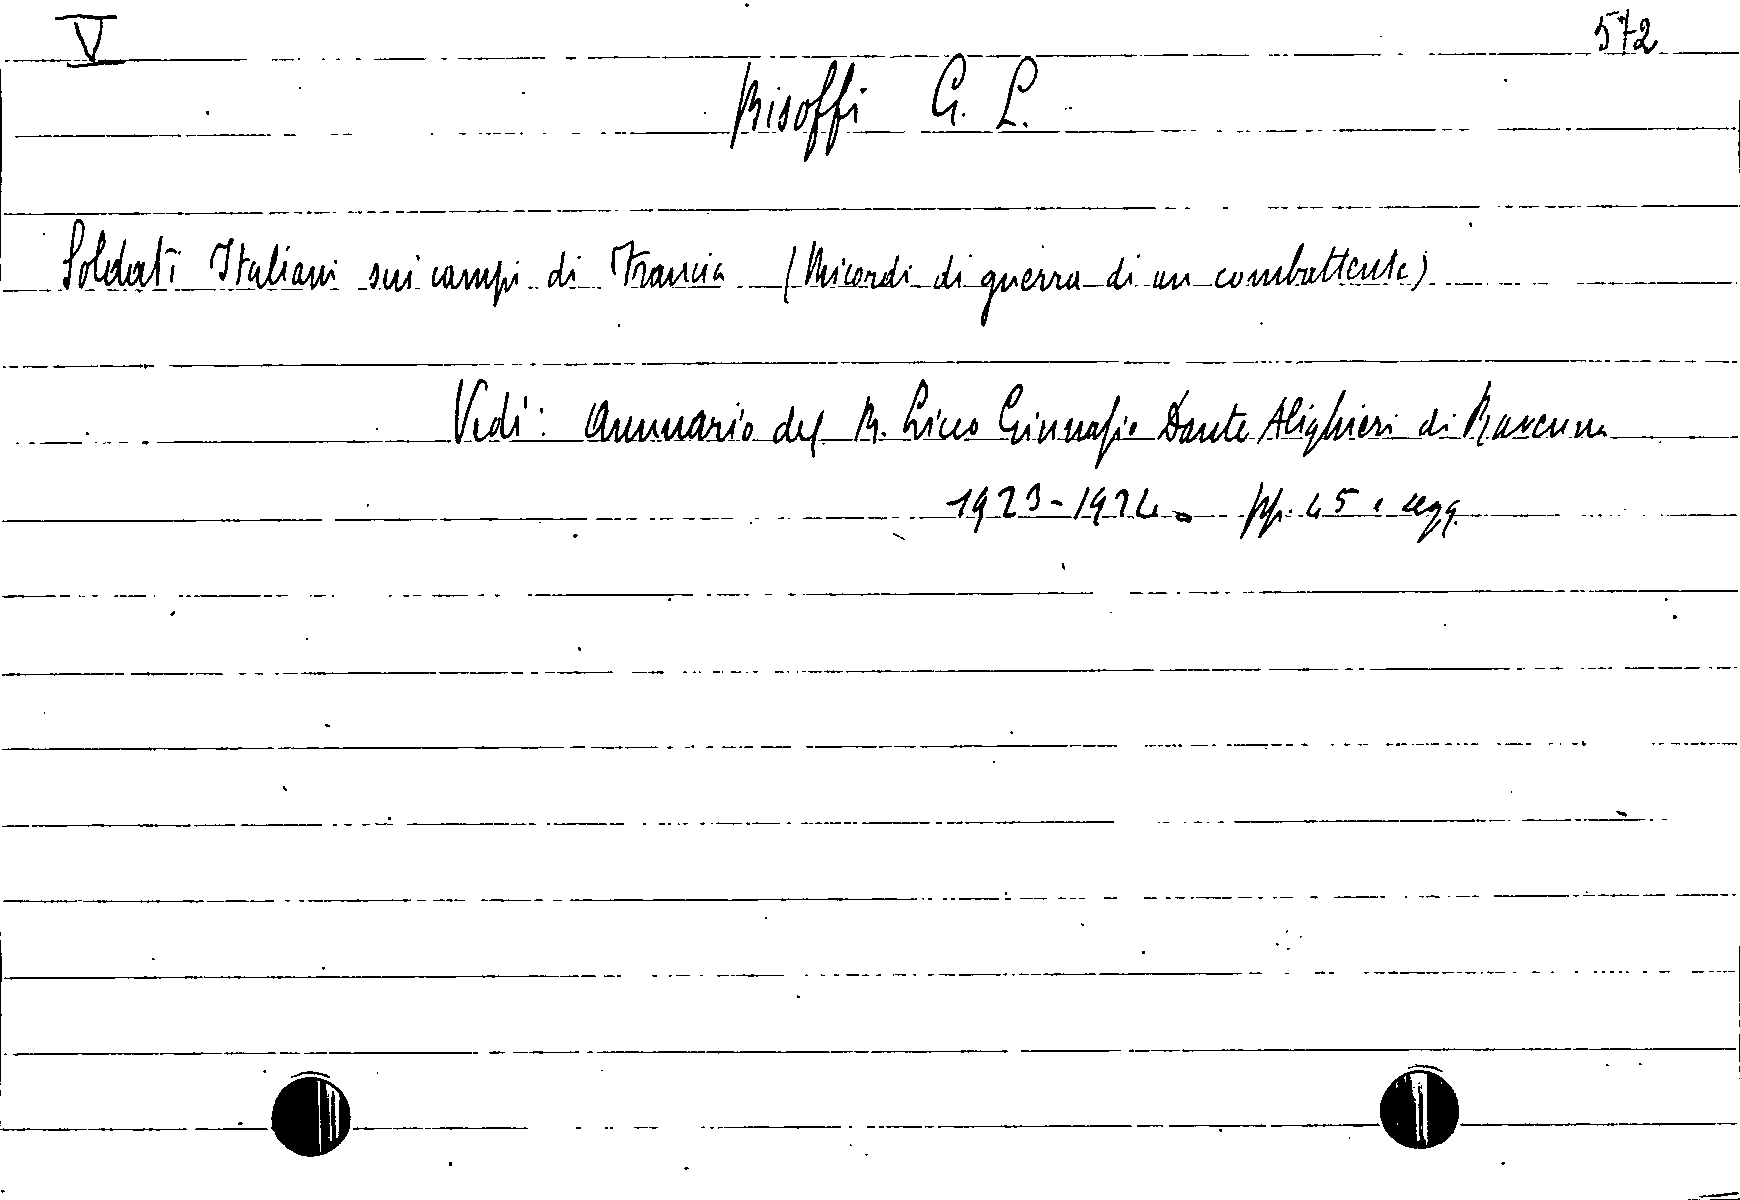 V 572
Risoffi G. L.
Soldati Italiani sui campi di Francia (Ricordi di guerra di un combattente)
Vedi: Annuario del R. Liceo Ginnasio Dante Alighieri di Ravenna
1923-1924. pp. 45 e segg.